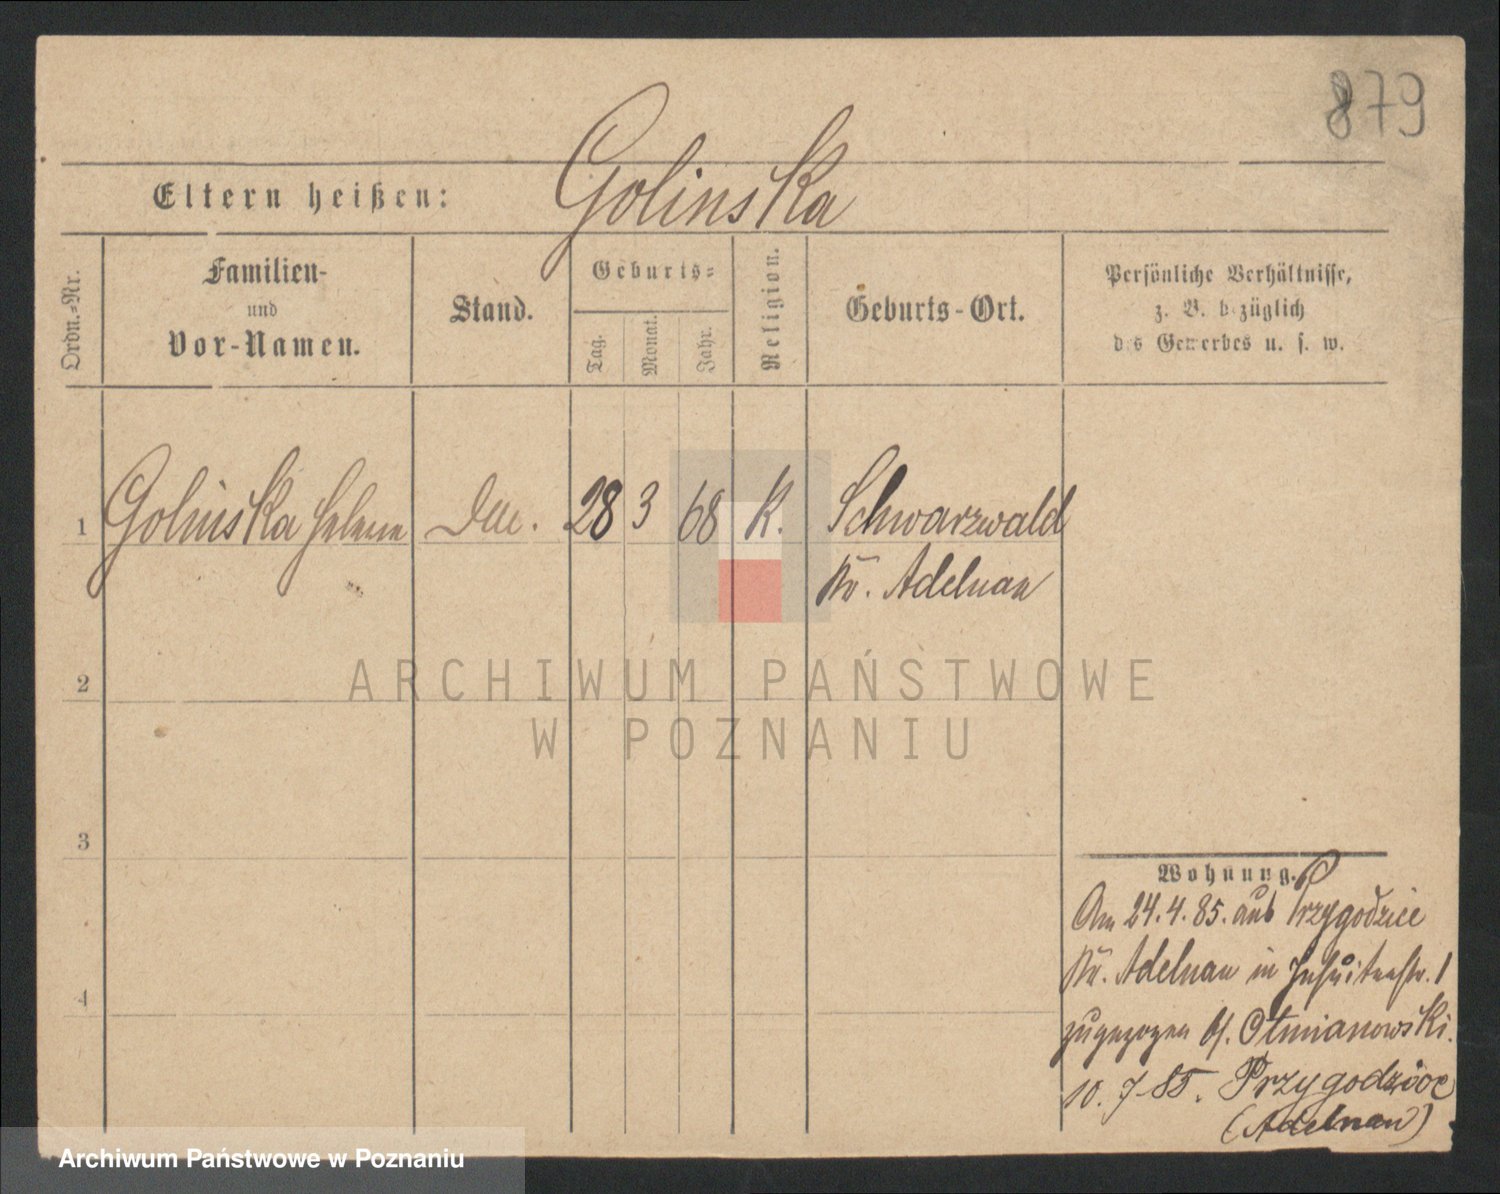 879
Golinska
Eltern heißen:
Ordn.-Nr.
Familien-
und
Vor-Namen.
Stand.
Geburts-
Tag.
Monat.
Jahr.
Religion.
Geburts-Ort.
Persönliche Verhältnisse,
z. B. bezüglich
des Gewerbes u. s. w.
1 Golinska Helene 28 3 68 K. Schwarzwald
Kr. Adelnau
2
3
4
Wohnung.
Am 24.4.85. aus Przygodzice
Kr. Adelnau in Jesuitenstr. 1
zugezogen b/. Otmianowski.
10. 7 85. Przygodzice
(Adelnau)
ARCHIWUM PAŃSTWOWE
W POZNANIU
Archiwum Państwowe w Poznaniu